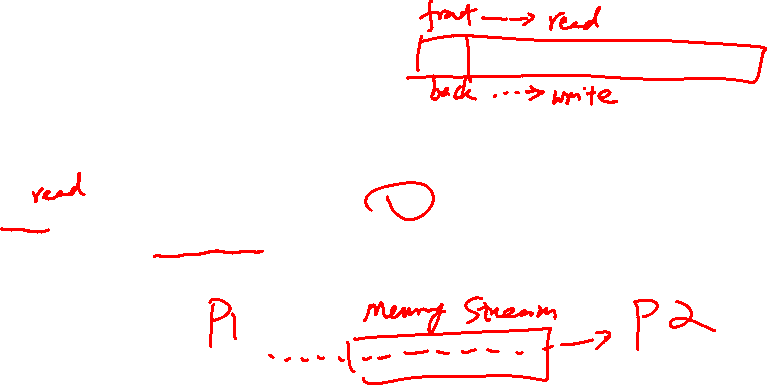 front → read
back ⋯→ write
read
P1
Memory Stream
P2